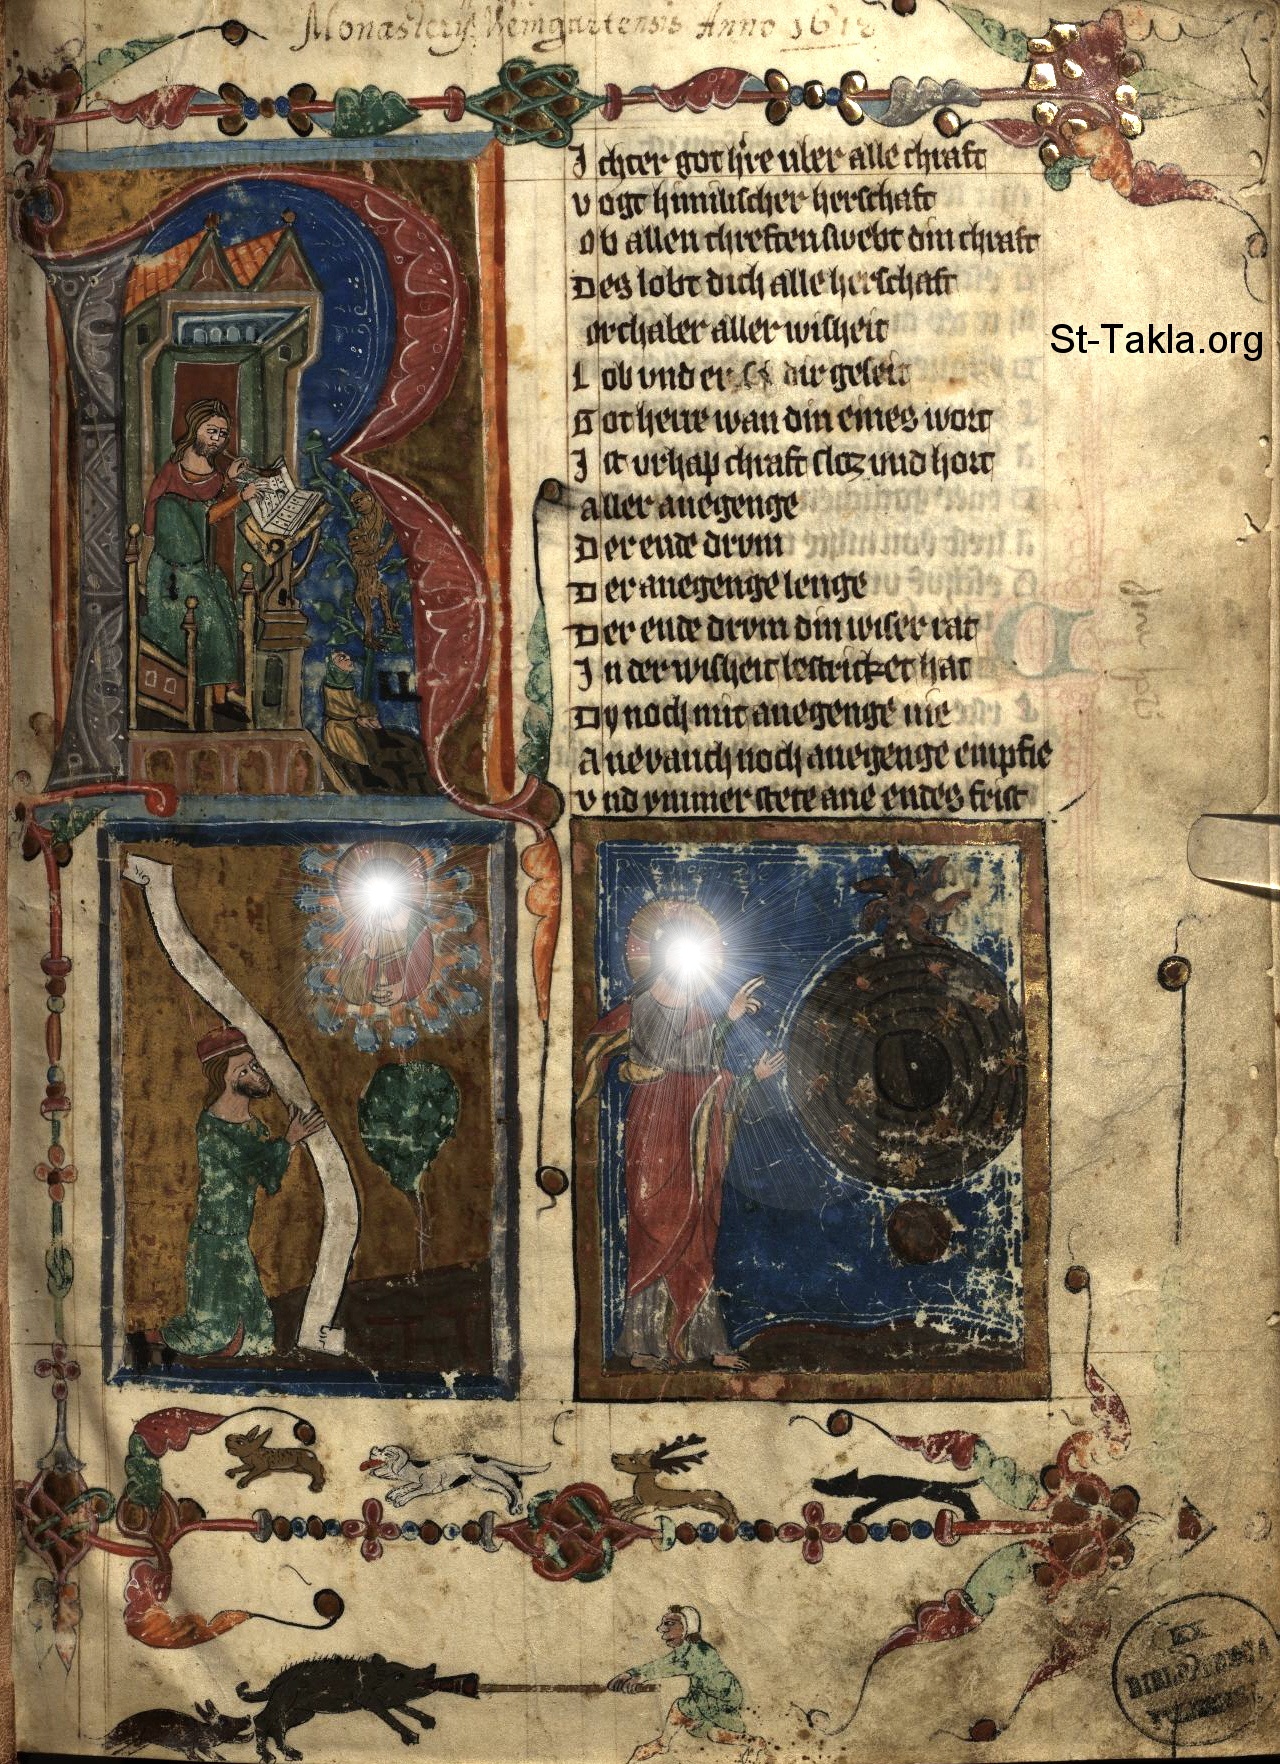 Monasterij Weingartensis Anno 1618
Ichter got h're uber alle chraft
vogt himilischer herschaft
ob allen chreften swebt din chraft
Des lobt dich alle herschaft
orthaber aller wisheit
Lob und er dir geseit
Got herre wan din eines wort
Ist urhap chraft sloz und hort
aller anegenge
Der ende drum
Der anegenge lenge
Der ende drum din wiser rat
In der wisheit bestricket hat
Dy noch mit anegenge nie
Anevanch noch anegenge empfie
vnd ymmer stete ane endes frist
St-Takla.org
EX
BIBLIOTHECA